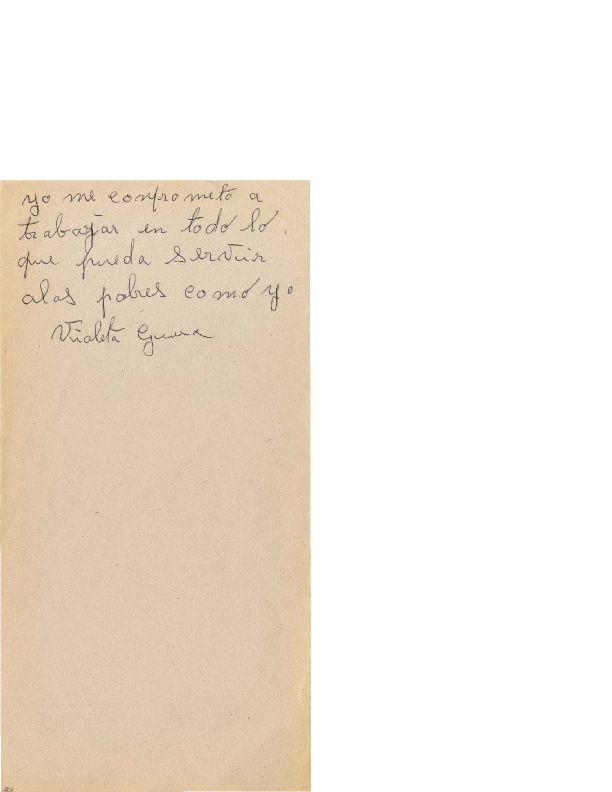 yo me conprometo a
trabajar en todo lo
que pueda servir
alas pobres como yo
Violeta Guerra